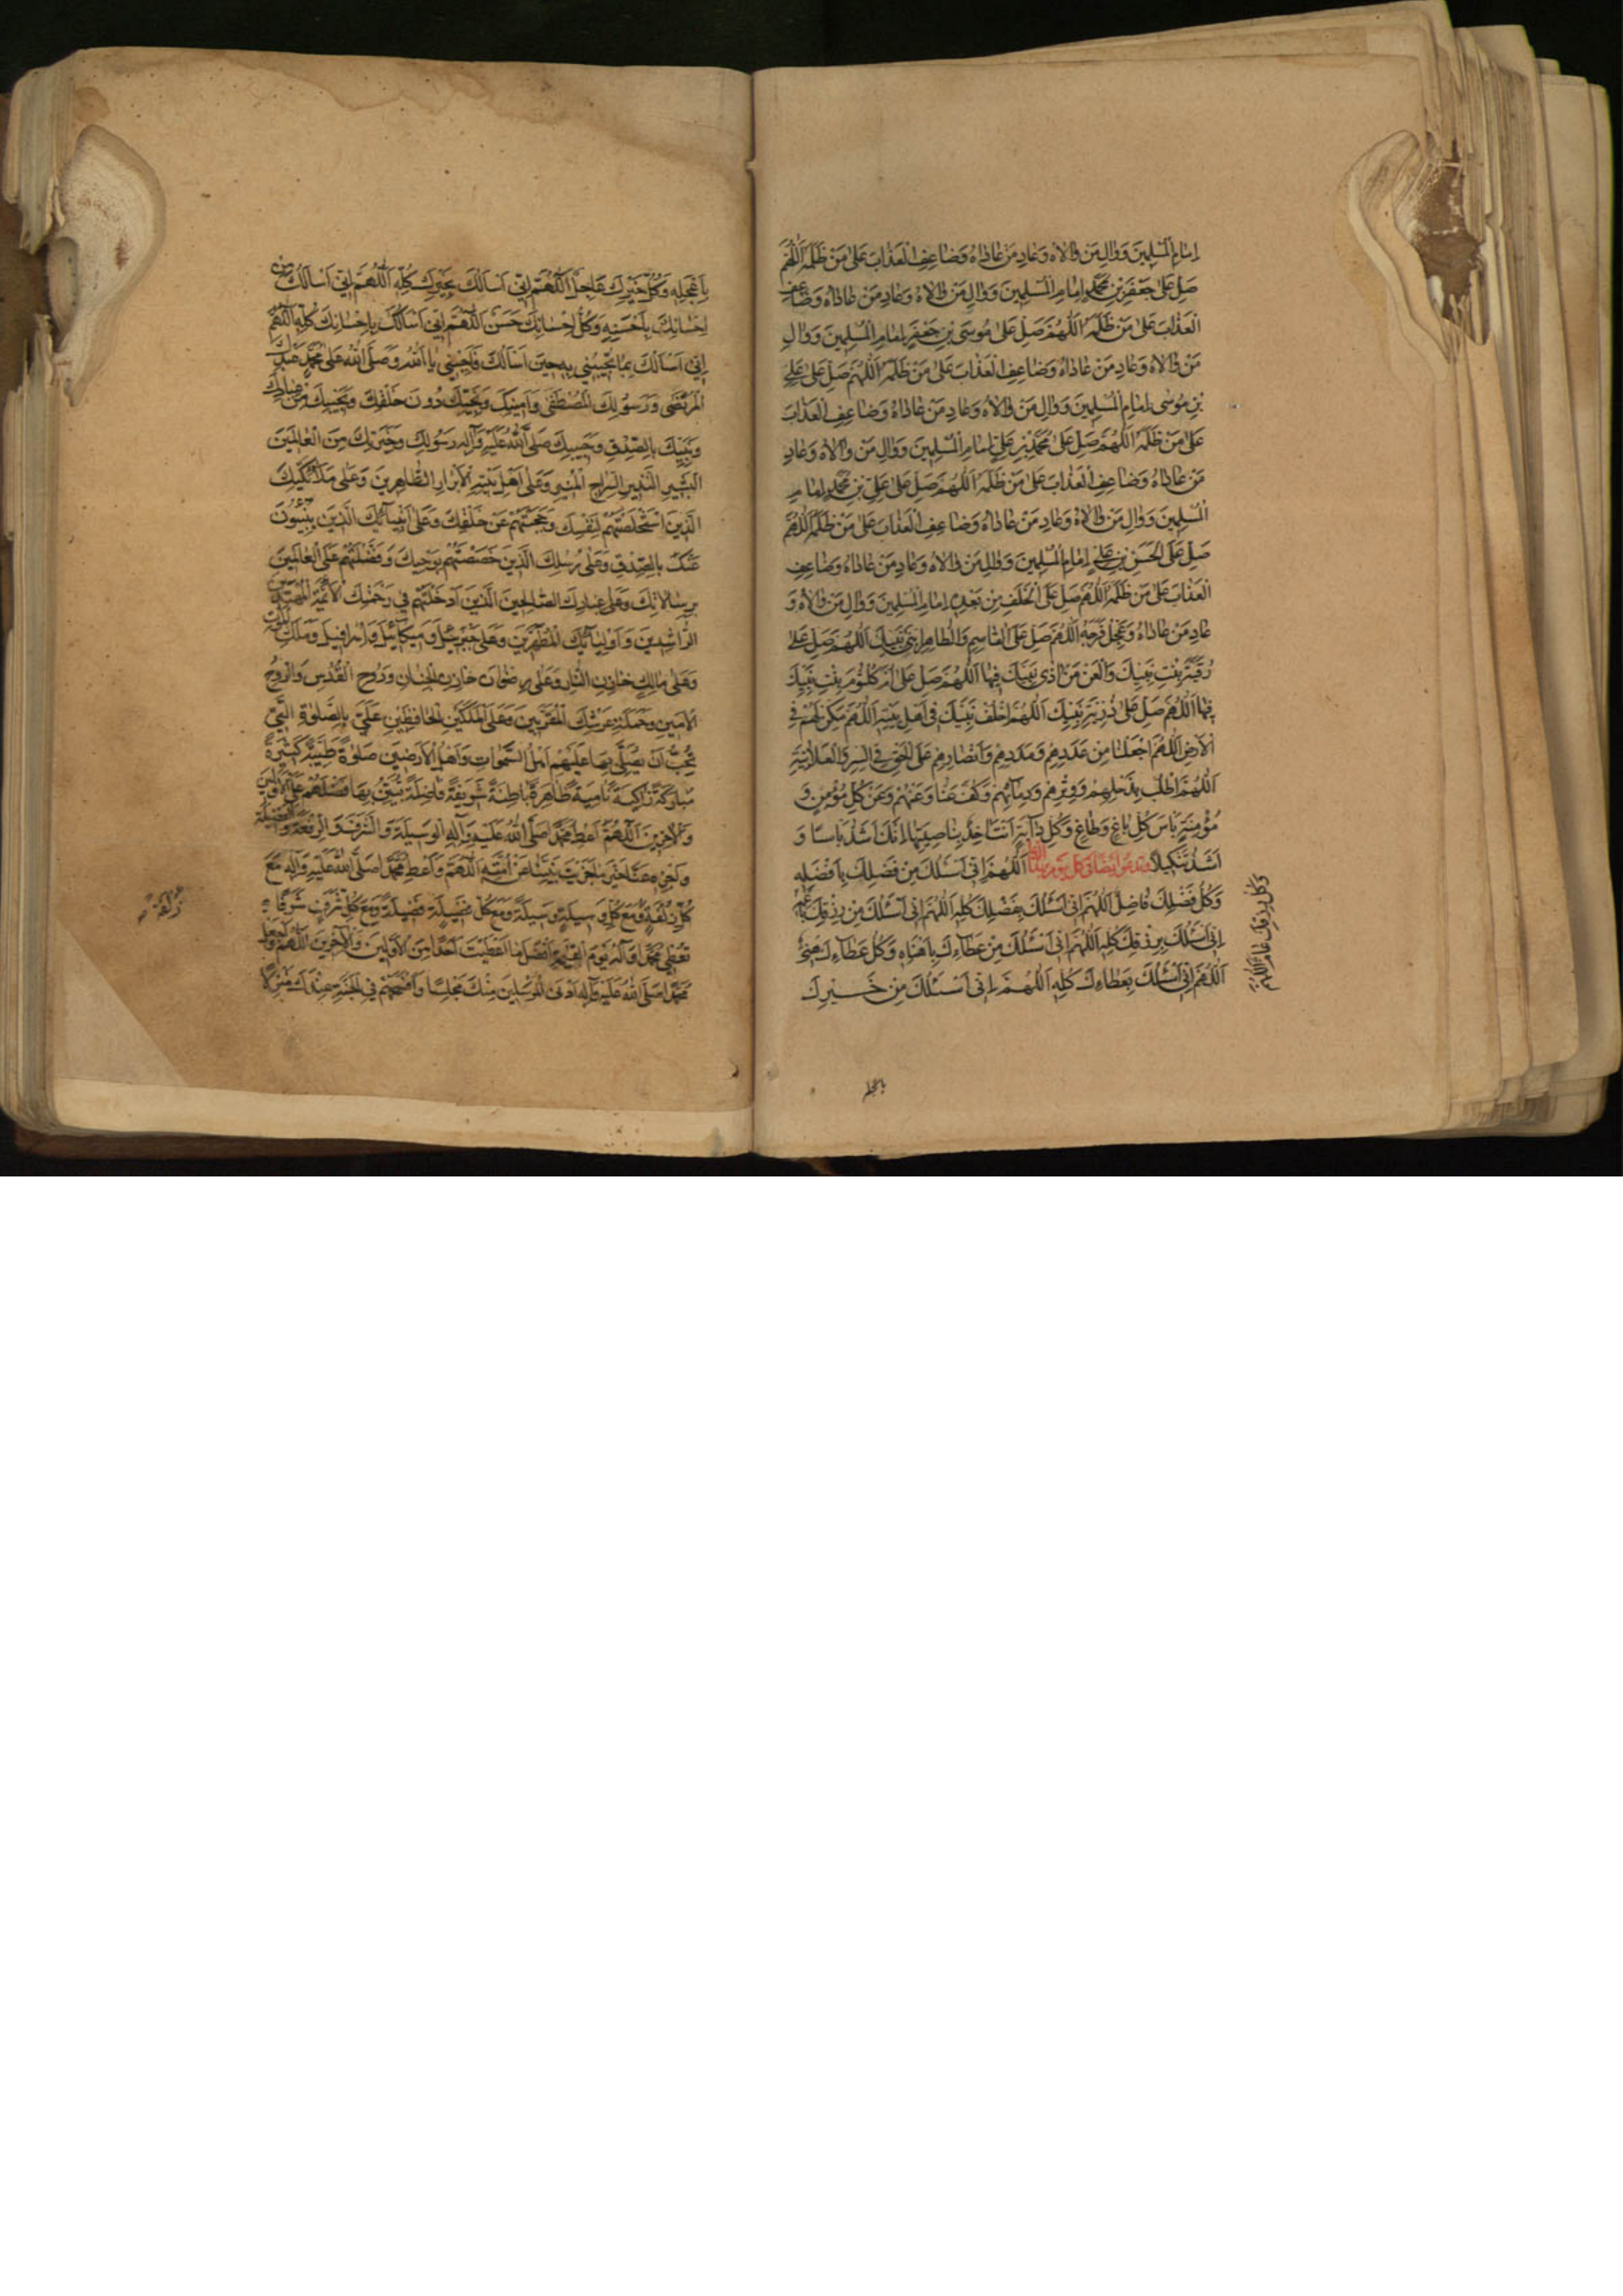 اِمٰامِ الْمُسْلِمينَ وَوٰالِ مَنْ وٰالٰاهُ وَعٰادِ مَنْ عٰادٰاهُ وَضٰاعِفِ الْعَذٰابَ عَلىٰ مَنْ ظَلَمَهُ اَللّٰهُمَّ
صَلِّ عَلىٰ جَعْفَرِ بْنِ مُحَمَّدٍ اِمٰامِ الْمُسْلِمينَ وَوٰالِ مَنْ وٰالٰاهُ وَعٰادِ مَنْ عٰادٰاهُ وَضٰاعِفِ
الْعَذٰابَ عَلىٰ مَنْ ظَلَمَهُ اَللّٰهُمَّ صَلِّ عَلىٰ مُوسَى بْنِ جَعْفَرٍ اِمٰامِ الْمُسْلِمينَ وَوٰالِ
مَنْ وٰالٰاهُ وَعٰادِ مَنْ عٰادٰاهُ وَضٰاعِفِ الْعَذٰابَ عَلىٰ مَنْ ظَلَمَهُ اَللّٰهُمَّ صَلِّ عَلىٰ عَلِيِّ
بْنِ مُوسٰى اِمٰامِ الْمُسْلِمينَ وَوٰالِ مَنْ وٰالٰاهُ وَعٰادِ مَنْ عٰادٰاهُ وَضٰاعِفِ الْعَذٰابَ
عَلىٰ مَنْ ظَلَمَهُ اَللّٰهُمَّ صَلِّ عَلىٰ مُحَمَّدِ بْنِ عَلِيٍّ اِمٰامِ الْمُسْلِمينَ وَوٰالِ مَنْ وٰالٰاهُ وَعٰادِ
مَنْ عٰادٰاهُ وَضٰاعِفِ الْعَذٰابَ عَلىٰ مَنْ ظَلَمَهُ اَللّٰهُمَّ صَلِّ عَلىٰ عَلِيِّ بْنِ مُحَمَّدٍ اِمٰامِ
الْمُسْلِمينَ وَوٰالِ مَنْ وٰالٰاهُ وَعٰادِ مَنْ عٰادٰاهُ وَضٰاعِفِ الْعَذٰابَ عَلىٰ مَنْ ظَلَمَهُ اَللّٰهُمَّ
صَلِّ عَلَى الْحَسَنِ بْنِ عَلِيٍّ اِمٰامِ الْمُسْلِمينَ وَوٰالِ مَنْ وٰالٰاهُ وَعٰادِ مَنْ عٰادٰاهُ وَضٰاعِفِ
الْعَذٰابَ عَلىٰ مَنْ ظَلَمَهُ اَللّٰهُمَّ صَلِّ عَلَى الْخَلَفِ مِنْ بَعْدِهِ اِمٰامِ الْمُسْلِمينَ وَوٰالِ مَنْ وٰالٰاهُ وَ
عٰادِ مَنْ عٰادٰاهُ وَعَجِّلْ فَرَجَهُ اَللّٰهُمَّ صَلِّ عَلَى الْقٰاسِمِ وَالطّٰاهِرِ ابْنَيْ نَبِيِّكَ اَللّٰهُمَّ صَلِّ عَلىٰ
رُقَيَّةَ بِنْتِ نَبِيِّكَ وَالْعَنْ مَنْ اٰذٰى نَبِيَّكَ فِيهٰا اَللّٰهُمَّ صَلِّ عَلىٰ اُمِّ كُلْثُومَ بِنْتِ نَبِيِّكَ
فيهٰا اَللّٰهُمَّ صَلِّ عَلىٰ ذُرِّيَّةِ نَبِيِّكَ اَللّٰهُمَّ اخْلُفْ نَبِيَّكَ في اَهْلِ بَيْتِهِ اَللّٰهُمَّ مَكِّنْ لَهُمْ في
الْاَرْضِ اَللّٰهُمَّ اجْعَلْنٰا مِنْ عَدَدِهِمْ وَمَدَدِهِمْ وَاَنْصٰارِهِمْ عَلَى الْحَقِّ فِي السِّرِّ وَالْعَلٰانِيَةِ
اَللّٰهُمَّ اطْلُبْ بِذَحْلِهِمْ وَوِتْرِهِمْ وَدِمٰائِهِمْ وَكُفَّ عَنّٰا وَعَنْهُمْ وَعَنْ كُلِّ مُؤْمِنٍ وَ
مُؤْمِنَةٍ بَأْسَ كُلِّ بٰاغٍ وَطٰاغٍ وَكُلِّ دٰآبَّةٍ اَنْتَ اٰخِذٌ بِنٰاصِيَتِهٰا اِنَّكَ اَشَدُّ بَأْسًا وَ
اَشَدُّ تَنْكيلاً وتدعو ايضا في كل يوم بهذا الدعا اَللّٰهُمَّ اِنّي اَسْئَلُكَ مِنْ فَضْلِكَ بِاَفْضَلِهِ
وَكُلُّ فَضْلِكَ فٰاضِلٌ اَللّٰهُمَّ اِنّي اَسْئَلُكَ بِفَضْلِكَ كُلِّهِ اَللّٰهُمَّ اِنّي اَسْئَلُكَ مِنْ رِزْقِكَ بِاَعَمِّهِ
وَكُلُّ رِزْقِكَ عٰامٌّ اَللّٰهُمَّ
اِنّي اَسْئَلُكَ بِرِزْقِكَ كُلِّهِ اَللّٰهُمَّ اِنّي اَسْئَلُكَ مِنْ عَطٰآءِكَ بِاَهْنَاهِ وَكُلُّ عَطٰاءِكَ هَنيءٌ
اَللّٰهُمَّ اِنّي اَسْئَلُكَ بِعَطٰاءِكَ كُلِّهِ اَللّٰهُمَّ اِنّي اَسْئَلُكَ مِنْ خَيْرِكَ
باعجله
بِاَعْجَلِهِ وَكُلُّ خَيْرِكَ عٰاجِلٌ اَللّٰهُمَّ اِنّي اَسْاَلُكَ بِخَيْرِكَ كُلِّهِ اَللّٰهُمَّ اِنّي اَسْاَلُكَ مِنْ
اِحْسٰانِكَ بِاَحْسَنِهِ وَكُلُّ اِحْسٰانِكَ حَسَنٌ اَللّٰهُمَّ اِنّي اَسْاَلُكَ بِاِحْسٰانِكَ كُلِّهِ اَللّٰهُمَّ
اِنّي اَسْاَلُكَ بِمٰا تُجيبُني بِهِ حينَ اَسْاَلُكَ فَاَجِبْني يٰا اَللّٰهُ وَصَلَّى اللّٰهُ عَلىٰ مُحَمَّدٍ عَبْدِكَ
الْمُرْتَضٰى وَرَسُولِكَ الْمُصْطَفٰى وَاَمينِكَ وَنَجِيِّكَ دُونَ خَلْقِكَ وَنَجيبِكَ مِنْ عِبٰادِكَ
وَنَبِيِّكَ بِالصِّدْقِ وَحَبيبِكَ صَلَّى اللّٰهُ عَلَيْهِ وَاٰلِهِ رَسُولِكَ وَخِيَرَتِكَ مِنَ الْعٰالَمينَ
الْبَشيرِ النَّذيرِ السِّرٰاجِ الْمُنيرِ وَعَلىٰ اَهْلِ بَيْتِهِ الْاَبْرٰارِ الطّٰاهِرينَ وَعَلىٰ مَلٰائِكَتِكَ
الَّذينَ اسْتَخْلَصْتَهُمْ لِنَفْسِكَ وَحَجَبْتَهُمْ عَنْ خَلْقِكَ وَعَلىٰ اَنْبِيٰائِكَ الَّذينَ يُنْبِئُونَ
عَنْكَ بِالصِّدْقِ وَعَلىٰ رُسُلِكَ الَّذينَ خَصَصْتَهُمْ بِوَحْيِكَ وَفَضَّلْتَهُمْ عَلَى الْعٰالَمينَ
بِرِسٰالٰاتِكَ وَعَلىٰ عِبٰادِكَ الصّٰالِحينَ الَّذينَ اَدْخَلْتَهُمْ في رَحْمَتِكَ الْاَئِمَّةِ الْمُهْتَدينَ
الرّٰاشِدينَ وَاَوْلِيٰائِكَ الْمُطَهَّرينَ وَعَلىٰ جَبْرَئيلَ وَميكٰائيلَ وَاِسْرٰافيلَ وَمَلَكِ الْمَوْتِ
وَعَلىٰ مٰالِكٍ خٰازِنِ النّٰارِ وَعَلىٰ رِضْوٰانَ خٰازِنِ الْجِنٰانِ وَرُوحِ الْقُدُسِ وَالرُّوحِ
الْاَمينِ وَحَمَلَةِ عَرْشِكَ الْمُقَرَّبينَ وَعَلَى الْمَلَكَيْنِ الْحٰافِظَيْنِ عَلَيَّ بِالصَّلٰوةِ الَّتي
تُحِبُّ اَنْ يُصَلِّيَ بِهٰا عَلَيْهِمْ اَهْلُ السَّمٰوٰاتِ وَاَهْلُ الْاَرَضينَ صَلٰوةً طَيِّبَةً كَثيرَةً
مُبٰارَكَةً زٰاكِيَةً نٰامِيَةً ظٰاهِرَةً بٰاطِنَةً شَريفَةً فٰاضِلَةً تُبَيِّنُ بِهٰا فَضْلَهُمْ عَلَى الْاَوَّلينَ
وَالْاٰخِرينَ اَللّٰهُمَّ اَعْطِ مُحَمَّدًا صَلَّى اللّٰهُ عَلَيْهِ وَاٰلِهِ الْوَسيلَةَ وَالشَّرَفَ وَالرِّفْعَةَ وَالْفَضيلَةَ
وَاجْزِهِ عَنّٰا خَيْرَ مٰا جَزَيْتَ نَبِيًّا عَنْ اُمَّتِهِ اَللّٰهُمَّ وَاَعْطِ مُحَمَّدًا صَلَّى اللّٰهُ عَلَيْهِ وَاٰلِهِ مَعَ
كُلِّ زُلْفَةٍ زُلْفَةً وَمَعَ كُلِّ وَسيلَةٍ وَسيلَةً وَمَعَ كُلِّ فَضيلَةٍ فَضيلَةً وَمَعَ كُلِّ شَرَفٍ شَرَفًا
تُعْطي مُحَمَّدًا وَاٰلَهُ يَوْمَ الْقِيٰمَةِ اَفْضَلَ مٰا اَعْطَيْتَ اَحَدًا مِنَ الْاَوَّلينَ وَالْاٰخِرينَ اَللّٰهُمَّ وَاجْعَلْ
مُحَمَّدًا صَلَّى اللّٰهُ عَلَيْهِ وَاٰلِهِ اَدْنَى الْمُرْسَلينَ مِنْكَ مَجْلِسًا وَاَفْسَحَهُمْ فِي الْجَنَّةِ عِنْدَكَ مَنْزِلًا
زُلْفَةً